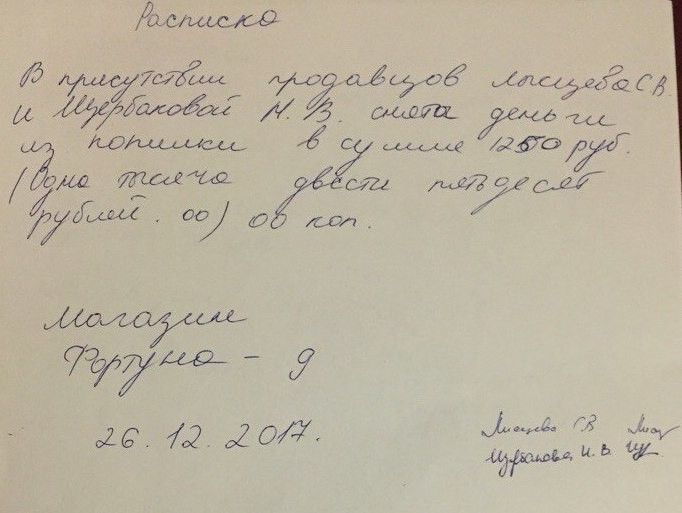 Расписка
В присутствии продавцов Лысцева С В.
и Щербаковой Н. В. снята деньги
из копилки в сумме 1250 руб.
(Одна тысяча двести пятьдесят
рублей. 00) 00 коп.
Магазин
Фортуна - 9
26.12.2017.
С В
Щербакова Н. В.